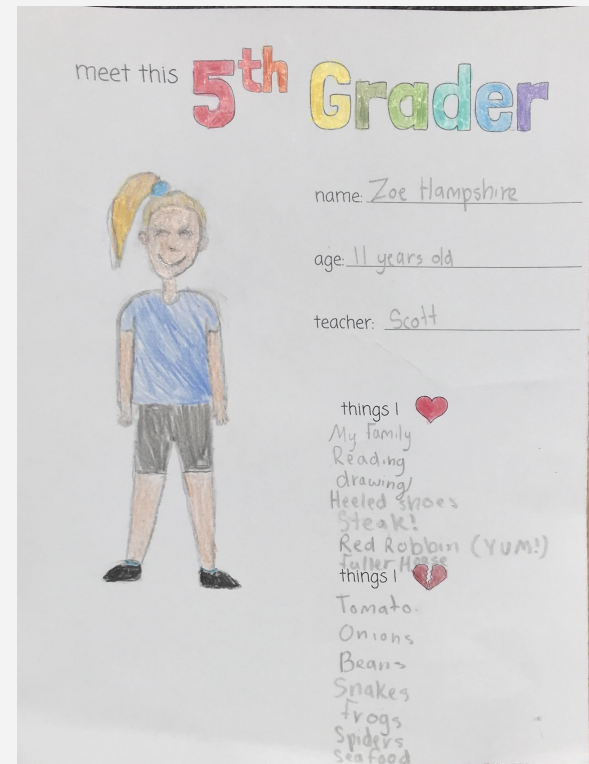 meet this 5th Grader
name: Zoe Hampshire
age: 11 years old
teacher: Scott
things I
My Family
Reading
drawing
Heeled shoes
Steak!
Red Robbin (YUM!)
Fuller House
things I
Tomato
Onions
Beans
Snakes
frogs
Spiders
Seafood